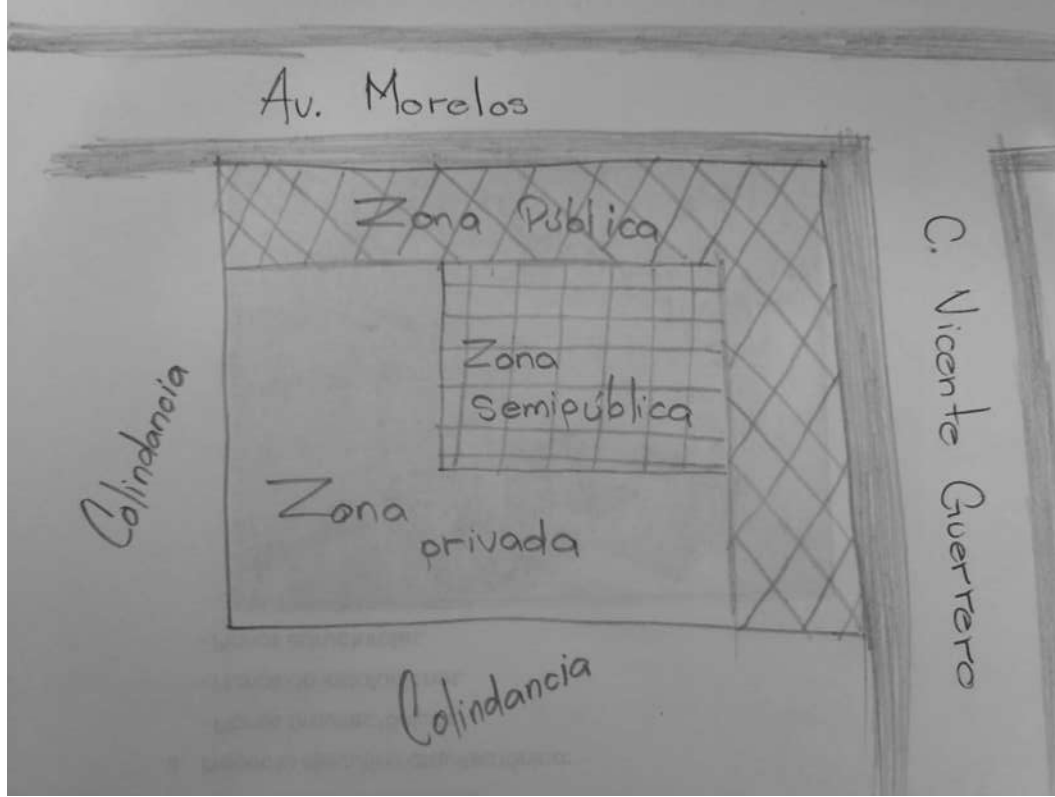 Av. Morelos
Zona Pública
C. Vicente Guerrero
Zona
semipública
Colindancia
Zona
privada
Colindancia